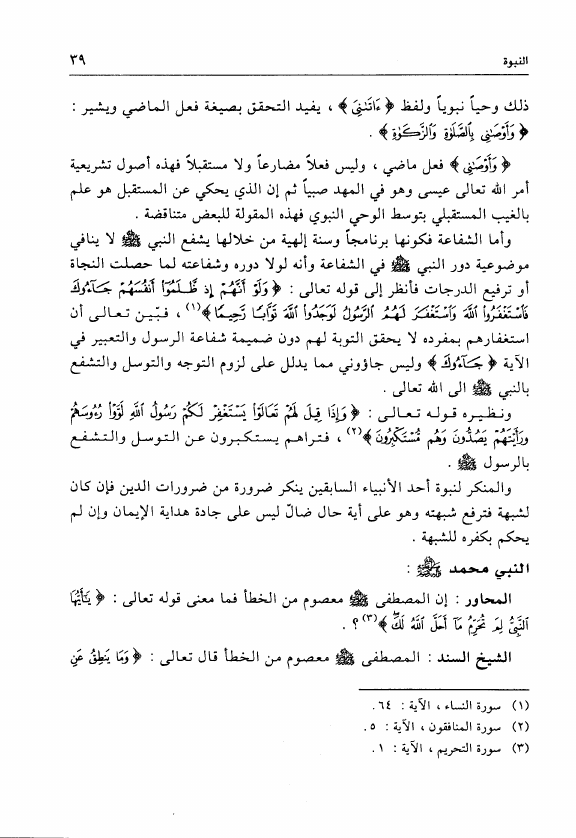 النبوة ٣٩
ذلك وحياً نبوياً ولفظ ﴿ ءَاتَىٰنِيَ ﴾ ، يفيد التحقق بصيغة فعل الماضي ويشير :
﴿ وَأَوْصَٰنِي بِٱلصَّلَوٰةِ وَٱلزَّكَوٰةِ ﴾ .
﴿ وَأَوْصَٰنِي ﴾ فعل ماضي ، وليس فعلاً مضارعاً ولا مستقبلاً فهذه أصول تشريعية
أمر الله تعالى عيسى وهو في المهد صبياً ثم إن الذي يحكي عن المستقبل هو علم
بالغيب المستقبلي بتوسط الوحي النبوي فهذه المقولة للبعض متناقضة .
وأما الشفاعة فكونها برنامجاً وسنة إلهية من خلالها يشفع النبي ﷺ لا ينافي
موضوعية دور النبي ﷺ في الشفاعة وأنه لولا دوره وشفاعته لما حصلت النجاة
أو ترفيع الدرجات فأنظر إلى قوله تعالى : ﴿ وَلَوْ أَنَّهُمْ إِذ ظَّلَمُوٓا۟ أَنفُسَهُمْ جَآءُوكَ
فَٱسْتَغْفَرُوا۟ ٱللَّهَ وَٱسْتَغْفَرَ لَهُمُ ٱلرَّسُولُ لَوَجَدُوا۟ ٱللَّهَ تَوَّابًا رَّحِيمًا ﴾(١) ، فبّين تعالى أن
استغفارهم بمفرده لا يحقق التوبة لهم دون ضميمة شفاعة الرسول والتعبير في
الآية ﴿ جَآءُوكَ ﴾ وليس جاؤوني مما يدلل على لزوم التوجه والتوسل والتشفع
بالنبي ﷺ الى الله تعالى .
ونظيره قوله تعالى : ﴿ وَإِذَا قِيلَ لَهُمْ تَعَالَوْا۟ يَسْتَغْفِرْ لَكُمْ رَسُولُ ٱللَّهِ لَوَّوْا۟ رُءُوسَهُمْ
وَرَأَيْتَهُمْ يَصُدُّونَ وَهُم مُّسْتَكْبِرُونَ ﴾(٢) ، فتراهم يستكبرون عن التوسل والتشفع
بالرسول ﷺ .
والمنكر لنبوة أحد الأنبياء السابقين ينكر ضرورة من ضرورات الدين فإن كان
لشبهة فترفع شبهته وهو على أية حال ضالّ ليس على جادة هداية الإيمان وإن لم
يحكم بكفره للشبهة .
النبي محمد ﷺ :
المحاور : إن المصطفى ﷺ معصوم من الخطأ فما معنى قوله تعالى : ﴿ يَٰٓأَيُّهَا
ٱلنَّبِيُّ لِمَ تُحَرِّمُ مَآ أَحَلَّ ٱللَّهُ لَكَ ﴾(٣) ؟ .
الشيخ السند : المصطفى ﷺ معصوم من الخطأ قال تعالى : ﴿ وَمَا يَنطِقُ عَنِ
(١) سورة النساء ، الآية : ٦٤ .
(٢) سورة المنافقون ، الآية : ٥ .
(٣) سورة التحريم ، الآية : ١ .